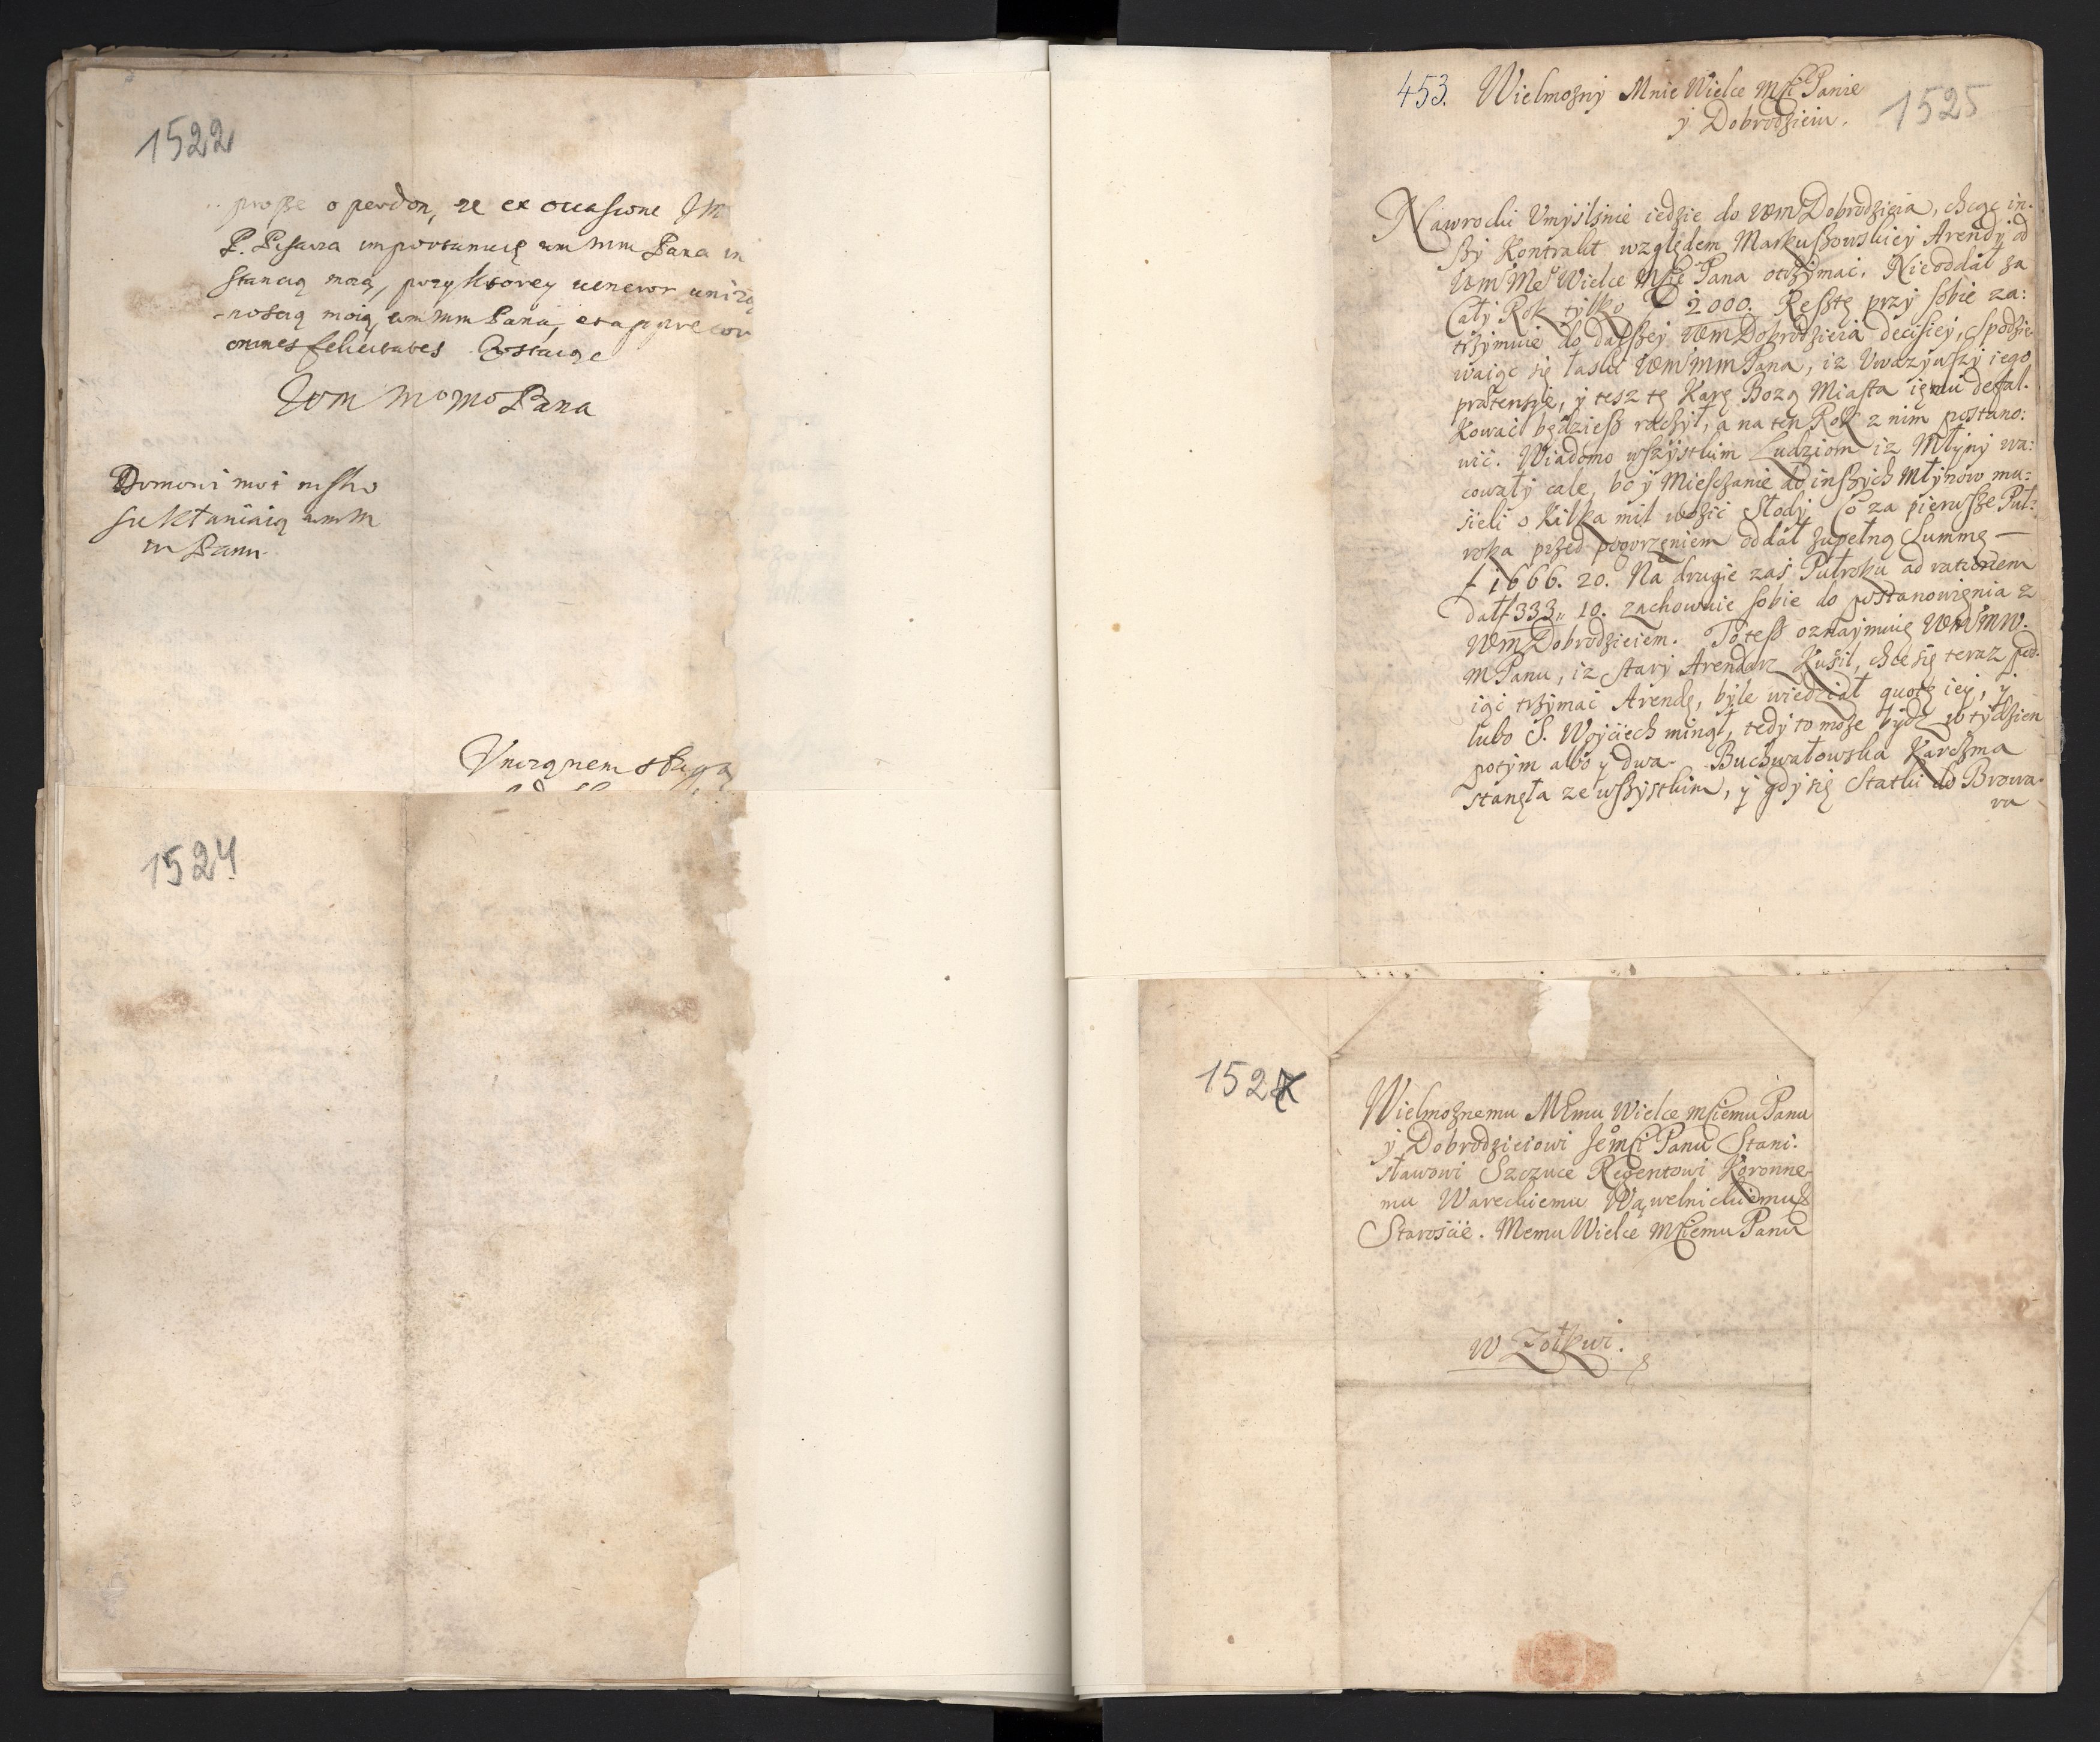 1522
proszę o perdon, że ex occasione Jm
P. Pisarza importunuię wm mm Pana in
stancią moią, przy ktorey veneror uniżo
-nością moią wm mm Pana, et apprecor
omnes felicitates Zostaiąc
Wm MoMo Pana
Domowi moi nisko
się kłaniaią wmm
m Panu.
Uniżonem sługą
1524
453. Wielmożny Mnie Wielce Mści Panie
y Dobrodzieiu.
1525
Nawrocki Umyślnie iedzie do WM Dobrodzieia, chcąc in-
szy Kontrakt względem Markuszowskiey Arendy od
Wm Me Wielce Mśe Pana otrzymać. Nieoddał za
Cały Rok tylko 2000. Resztę przy sobie za:
trzymuie do dalszey WM Dobrodzieia decisiey, spodzie-
waiąc się łaski WmMm Pana, iż Uważywszy iego
prætensye, y tesz tę Karę Bozą Miasta iemu defal-
kować będziesz raczył, a na ten Rok z nim postano:
wić. Wiadomo wszystkim Ludziom iz Młyny wa:
cowały cale, bo y Mieszczanie do inszych Młynow mu:
sieli o kilka mil wozić Słody Co za pierwsze Puł:
roka przed pogorzeniem oddał zupełną Summę —
f 1666. 20. Na drugie zaś Pułroku ad rationem
dał f 333. 10. zachowuie sobie do postanowienia z
WM Dobrodzieiem. Totesz oznaymuię WmMW.
M Panu, iz stary Arendarz Kusil, chce się teraz pod-
iąć trzymać Arendę, byle wiedział quotę iey, y
lubo S. Woyciech minął, tedy to może bydz w tydzien
potym albo y dwa. Buchwałowska Karczma
stanęła ze wszystkim, y gdy się Statki do Browa-
ru
1527
Wielmożnemu Memu Wielce Mściemu Panu
y Dobrodzieiowi Jemści Panu Stani:
sławowi Szczuce Regentowi Koronne-
mu Wareckiemu Wąwelnickiemu &
Staroście. Memu Wielce Mściemu Panu
w Żołkwi.